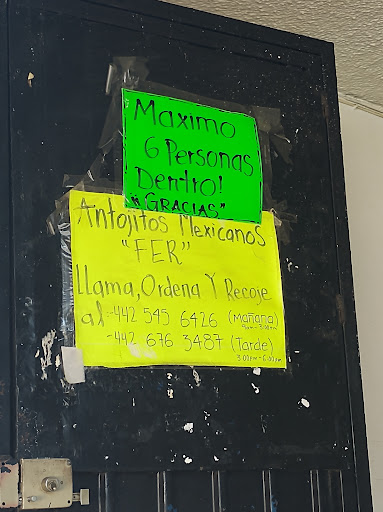 Maximo
6 Personas
Dentro!
"GRACIAS"
Antojitos Mexicanos
"FER"
Llama, Ordena Y Recoje
al:-442 545 6426 (Mañana)
9am-3:00pm
-442 676 3487 (Tarde)
3:00pm-6:00pm